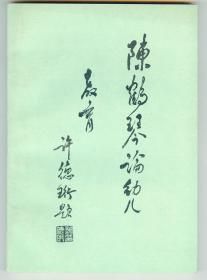 陳鶴琴論幼儿
教育
许德珩题